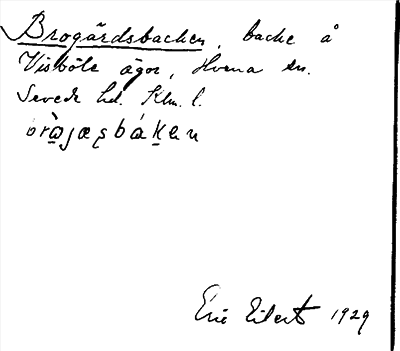 Brogårdsbacken, backe å
Visböle ägor, Hvena sn.
Sevede hd. Klm. l.
Eric Eilert 1929